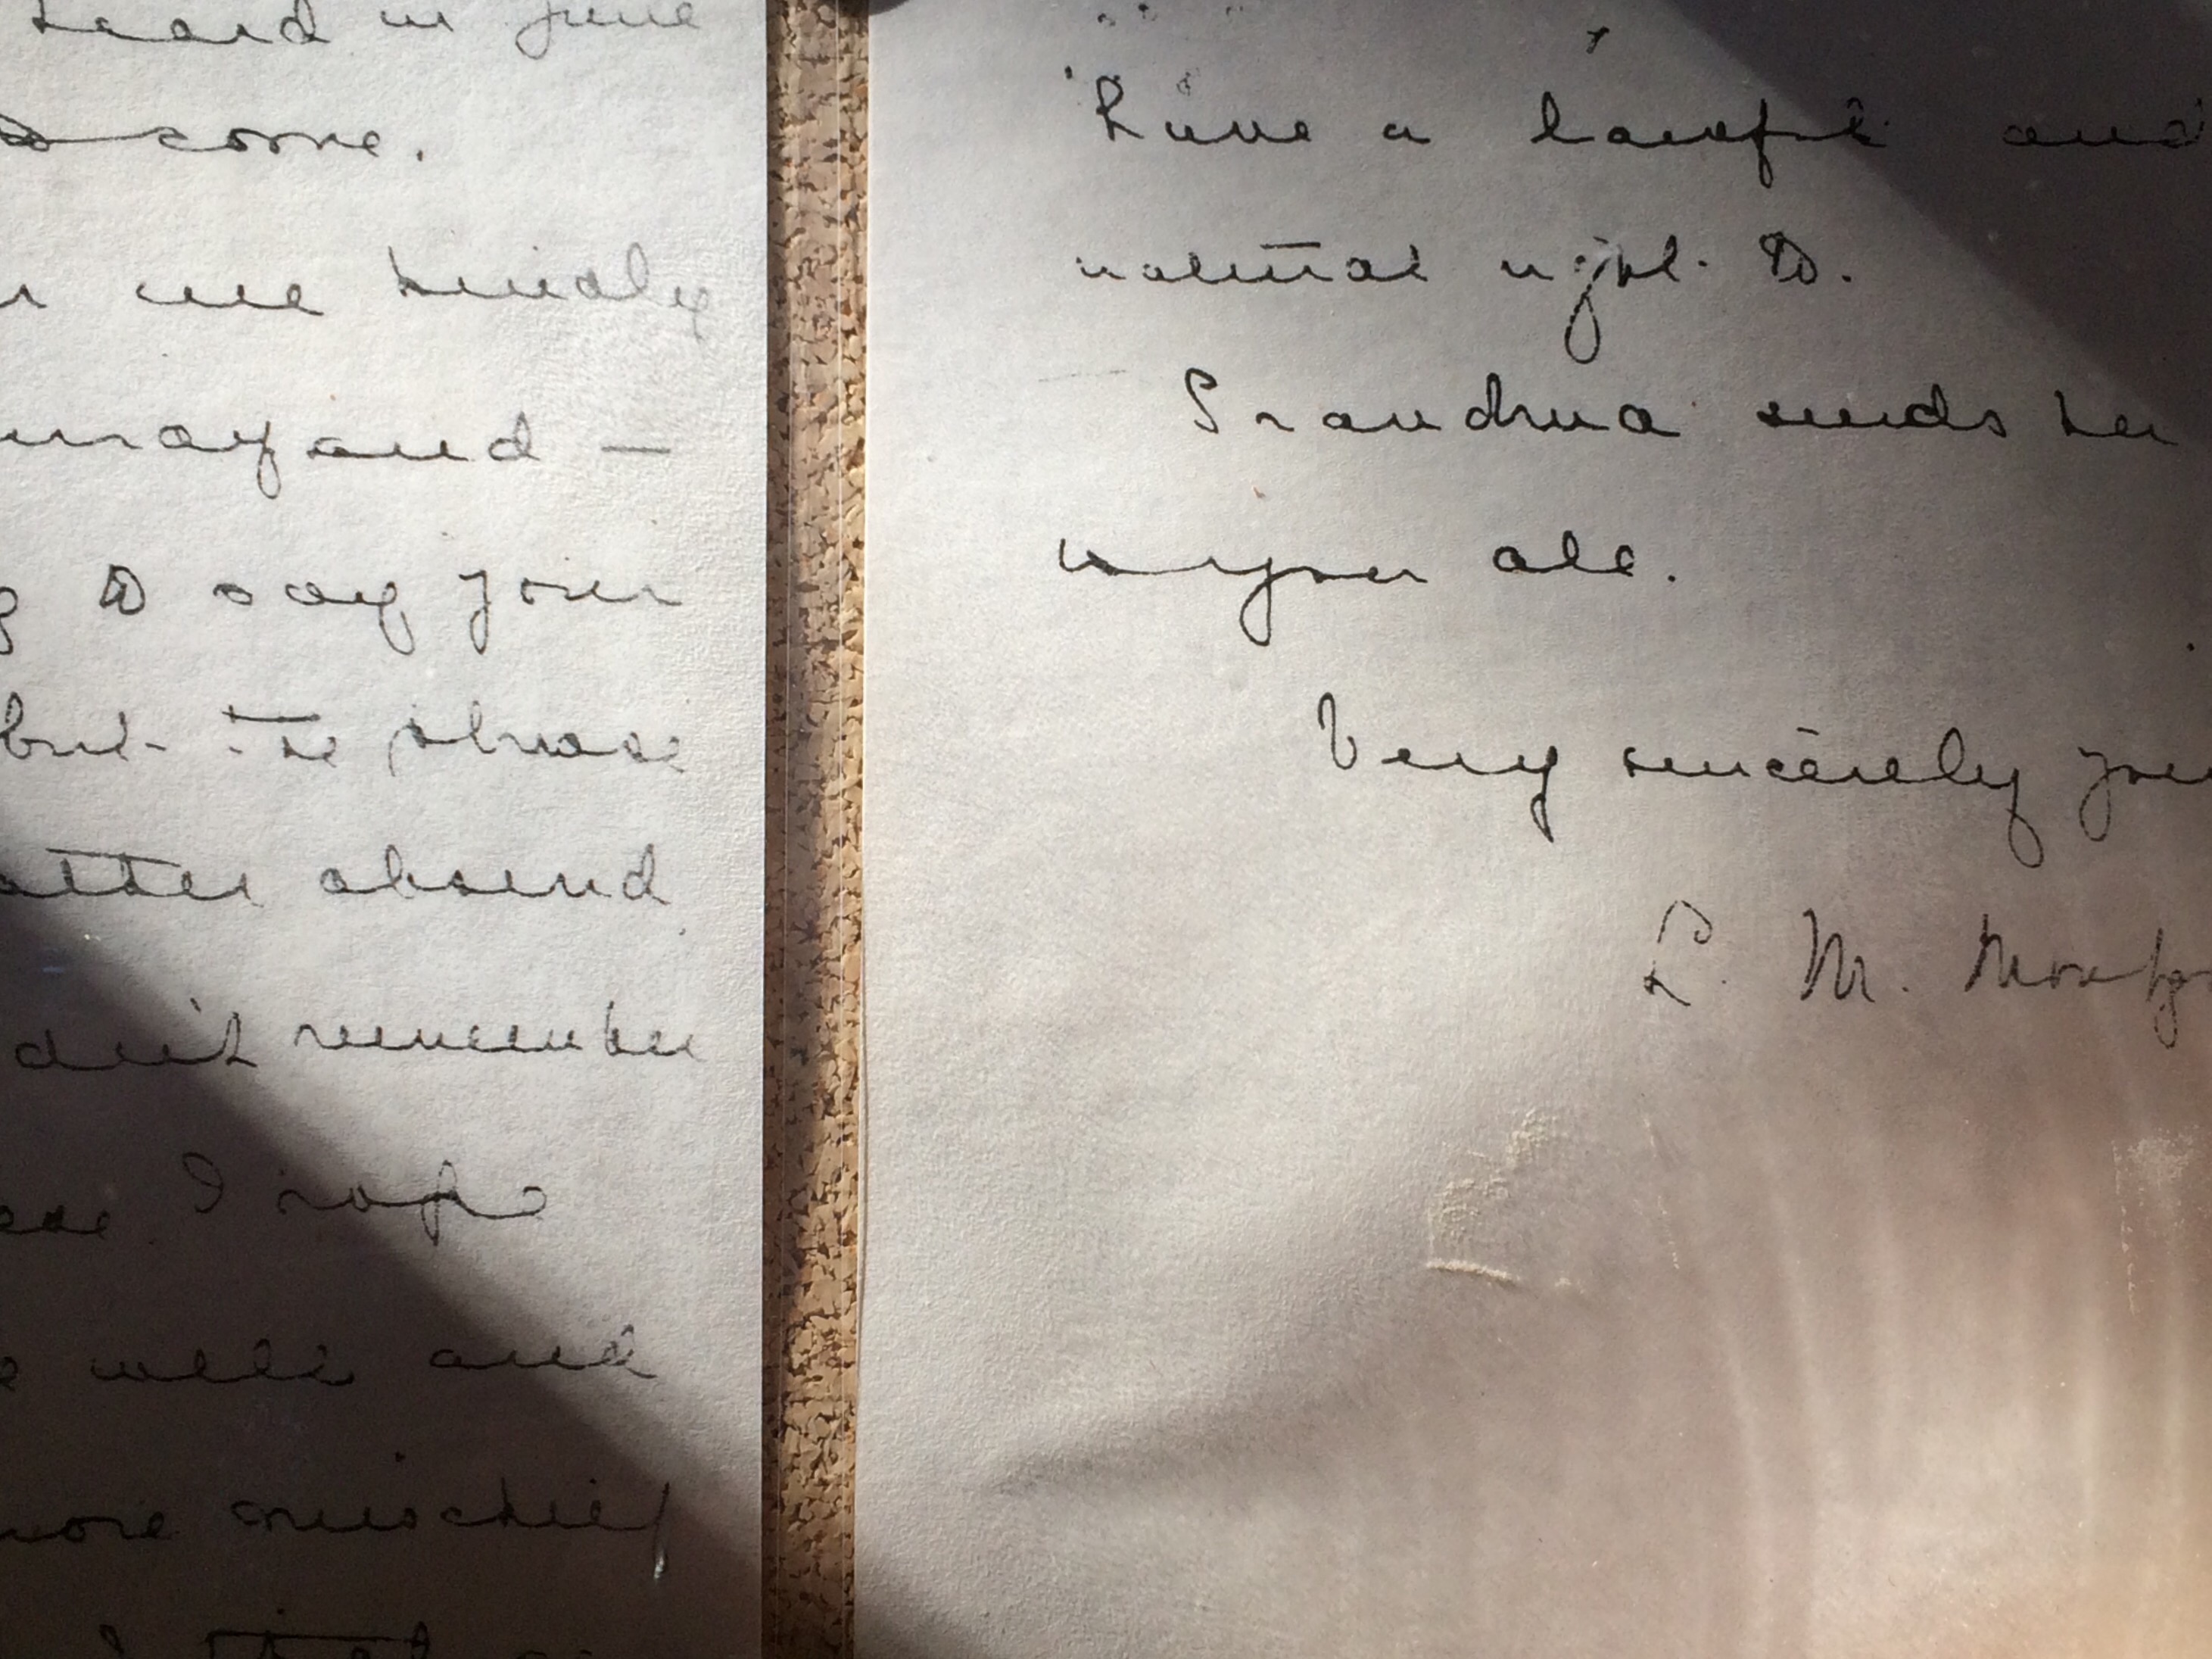 heard in June
to come.
me kindly
away and —
to say your
but the phrase
rather absurd
don't remember
I hope
well and
more mischief
have a lawful and
natural right to.
Grandma sends her
all.
Very sincerely
L. M.